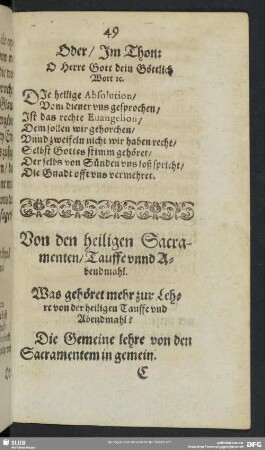 49
Oder/ Im Thon:
O Herre Gott dein Göttlich
Wort ꝛc.
DIe heilige Absolution/
Vom diener vns gesprochen/
Ist das rechte Euangelion/
Dem sollen wir gehorchen/
Vnnd zweifeln nicht wir haben recht/
Selbst Gottes stimm gehöret/
Der selbs von Sünden vns loß spricht/
Die Gnadt offt vns vermehret.
Von den heiligen Sacra-
menten/ Tauffe vnnd A-
bendmahl.
Was gehöret mehr zur Leh-
re von der heiligen Tauffe vnd
Abendmahl?
Die Gemeine lehre von den
Sacramentem in gemein.
C
SLUB
DFG